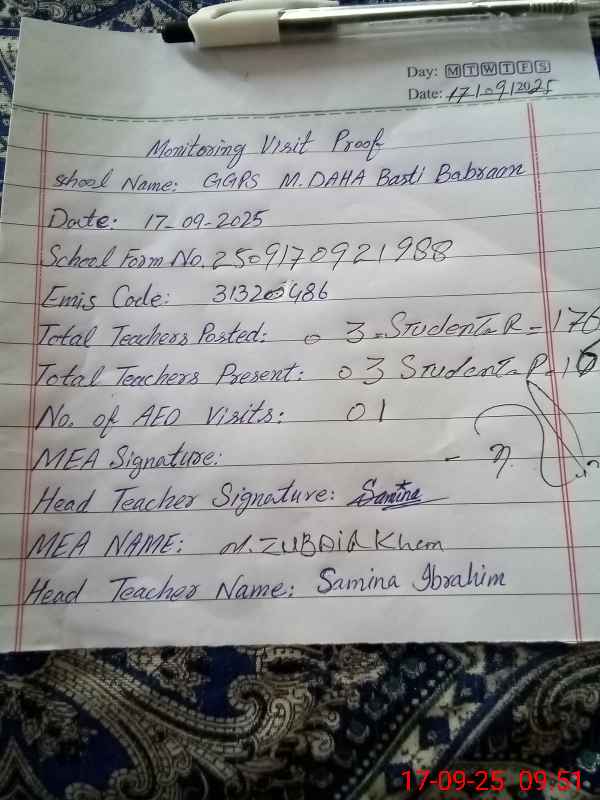 Day: M T W T F S
Date: 17/09/2025
Monitoring Visit Proof
School Name: GGPS M.DAHA Basti Babraan
Date: 17-09-2025
School Form No. 2509170921988
Emis Code: 31320486
Total Teachers Posted: 03 - Student-R = 176
Total Teachers Present: 03 Student-P =
No. of AEO Visits: 01
MEA Signature:
Head Teacher Signature: Samina
MEA NAME: M.ZUBAIR Khan
Head Teacher Name: Samina Ibrahim
17-09-25 09:51